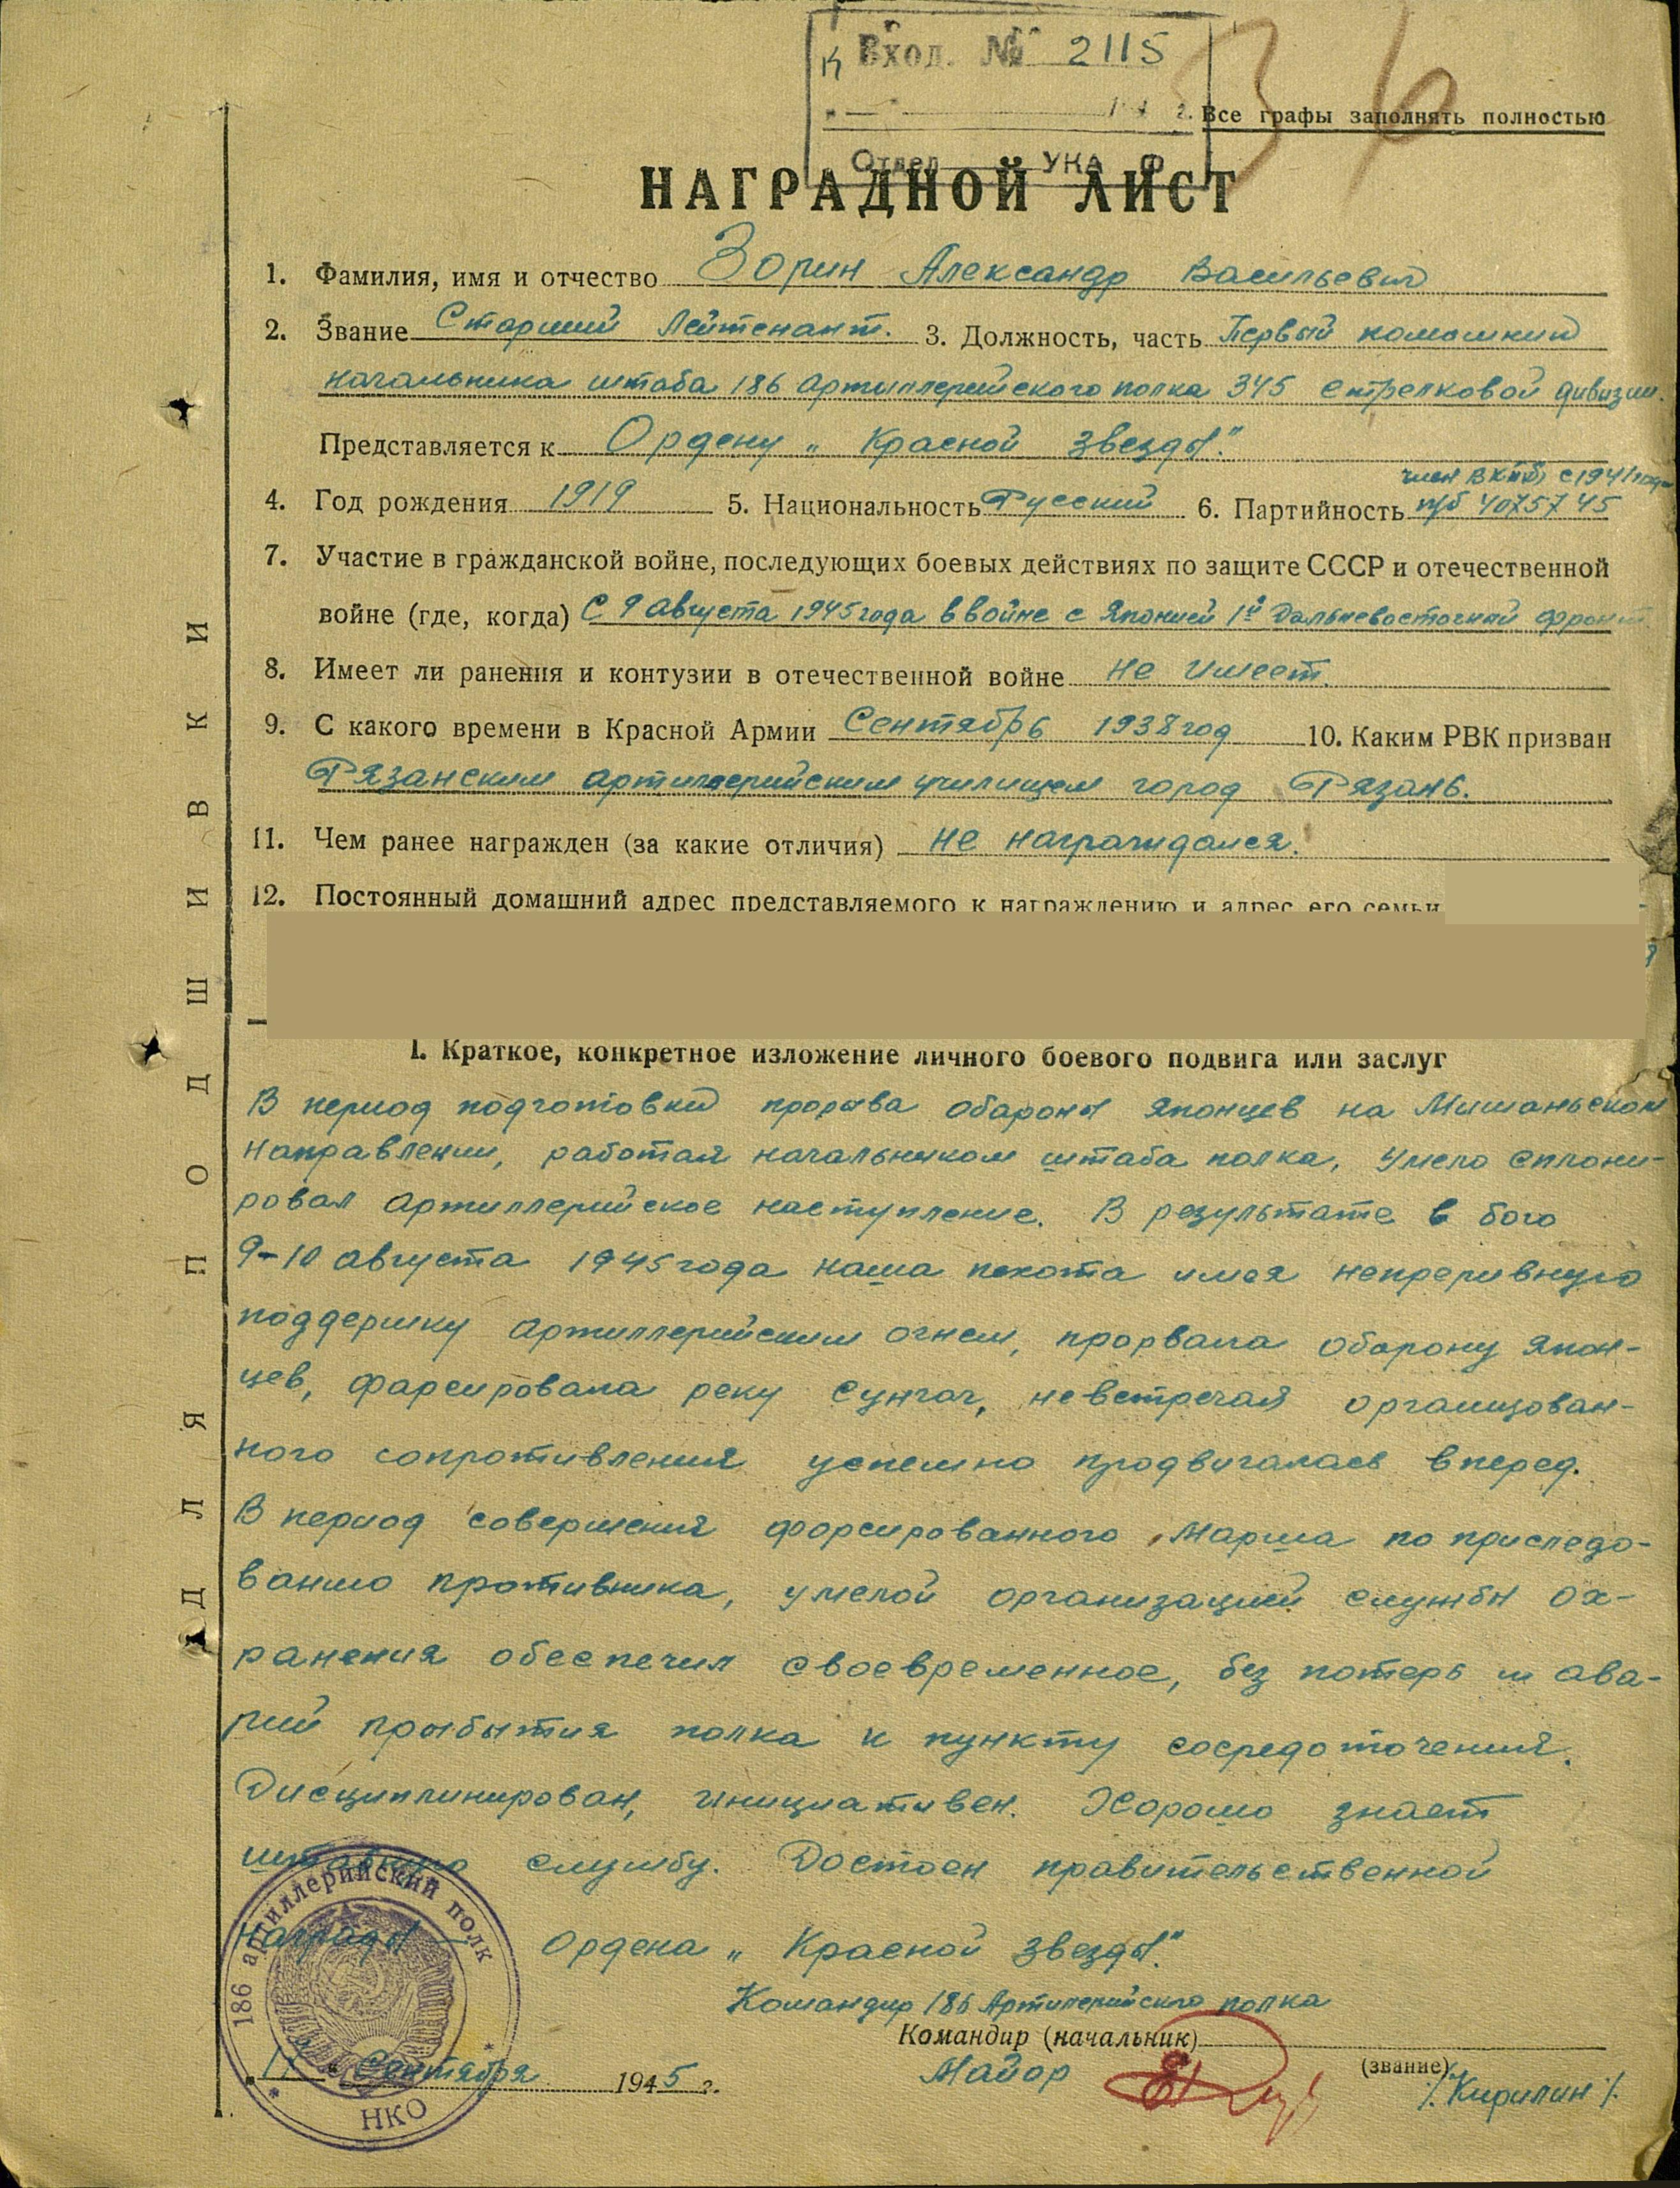 Вход. № 2115
36
Все графы заполнять полностью
Отдел УКА Ф
НАГРАДНОЙ ЛИСТ
1. Фамилия, имя и отчество Зорин Александр Васильевич
2. Звание Старший Лейтенант. 3. Должность, часть Первый помошник
начальника штаба 186 Артиллерийского полка 345 стрелковой дивизии.
Представляется к Ордену „Красной звезды".
член ВКП(б) с 1941 года
4. Год рождения 1919 5. Национальность Русский 6. Партийность п/б 4075745
7. Участие в гражданской войне, последующих боевых действиях по защите СССР и отечественной
войне (где, когда) С 9 августа 1945 года в войне с Японией 1й Дальневосточный фронт
8. Имеет ли ранения и контузии в отечественной войне не имеет.
9. С какого времени в Красной Армии Сентябрь 1938 год 10. Каким РВК призван
Рязанским артиллерийским училищем город Рязань.
11. Чем ранее награжден (за какие отличия) не награждался.
12. Постоянный домашний адрес представляемого к награждению и адрес его семьи
I. Краткое, конкретное изложение личного боевого подвига или заслуг
В период подготовки прорыва обароны японцев на Мишаньском
направлении, работая начальником штаба полка, умело сплани-
ровал артиллерийское наступление. В результате в бою
9-10 августа 1945 года наша пехота имея непреривную
поддержку артиллерийским огнем, прорвала оборону япон-
цев, фарсировала реку Сунгач, невстречая организован-
ного сопротивления успешно продвигалась вперед.
В период совершения форсированного марша по приследо-
ванию противника, умелой организацией службы ох-
ранения обеспечил своевременное, без потерь и ава-
рий прибытия полка к пункту сосредоточения.
Дисциплинирован, инициативен. Хорошо знает
штабную службу. Достоен правительственной
награды – Ордена „Красной звезды".
Командир 186 Артилерийского полка
Командир (начальник)
Майор (звание) /Кирилин/
Сентября 1945 г.
186 артиллерийский полк
НКО
ДЛЯ ПОДШИВКИ